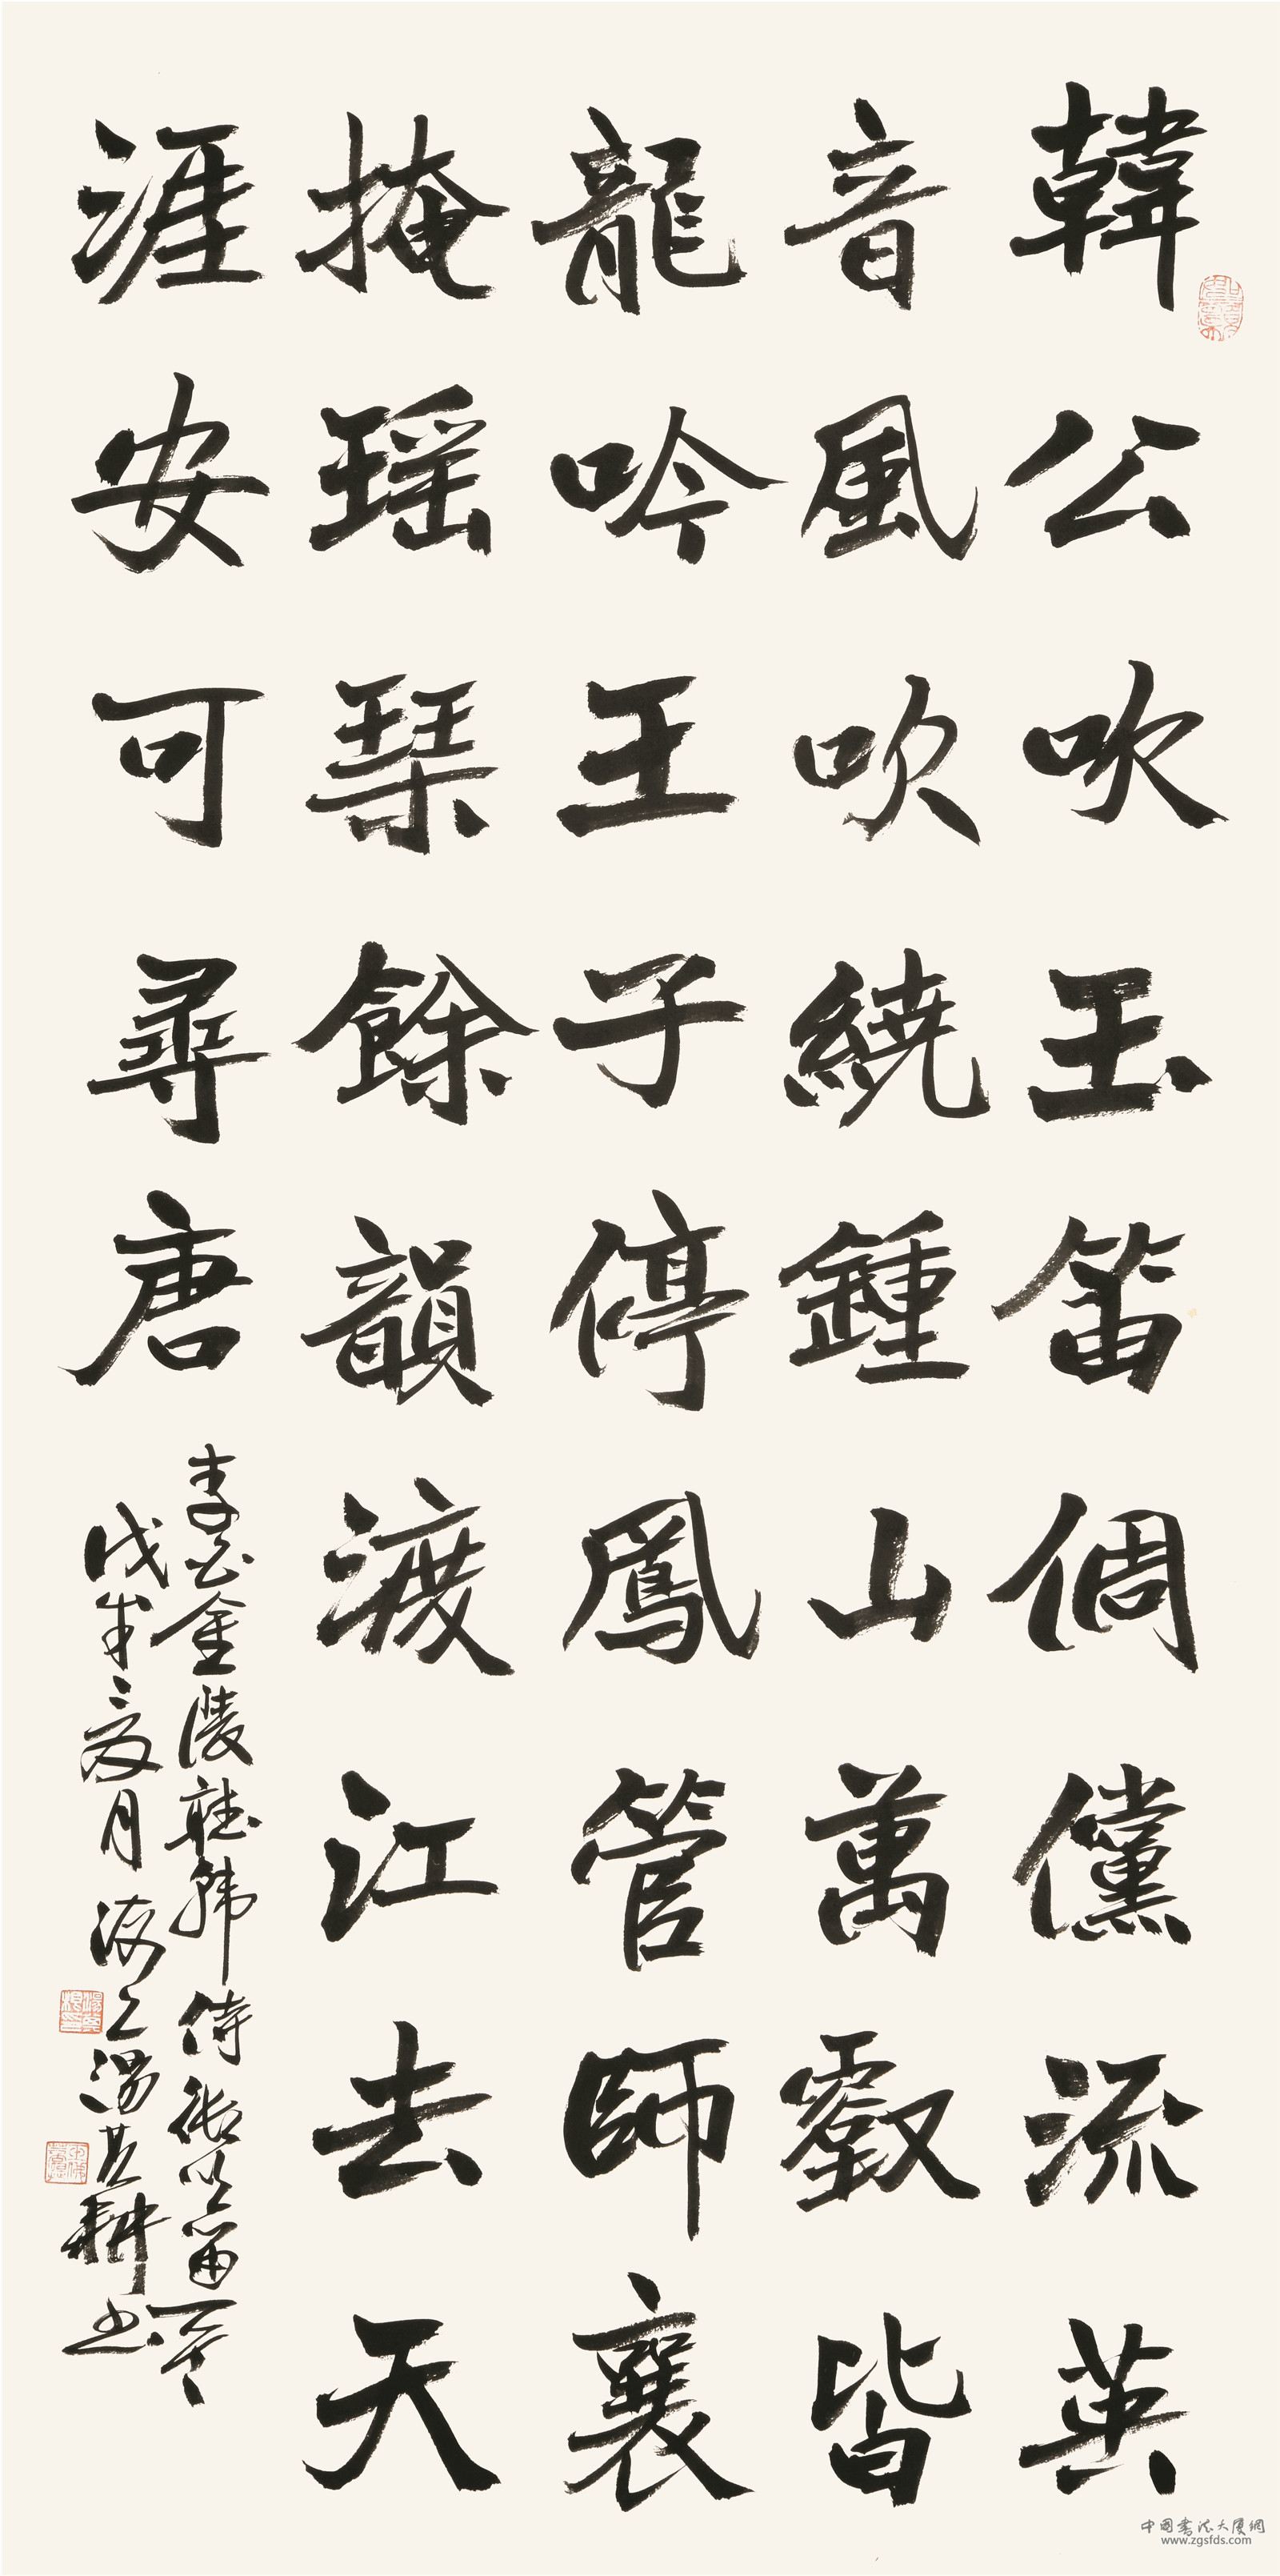 韓公吹玉笛倜儻流英
音風吹繞鍾山萬壑皆
龍吟王子停鳳管師襄
掩瑶琴餘韻渡江去天
涯安可尋唐
李白金陵聽韩侍御吹笛一首
月海上湯其耕书
中国書法大厦網
www.zgsfds.com